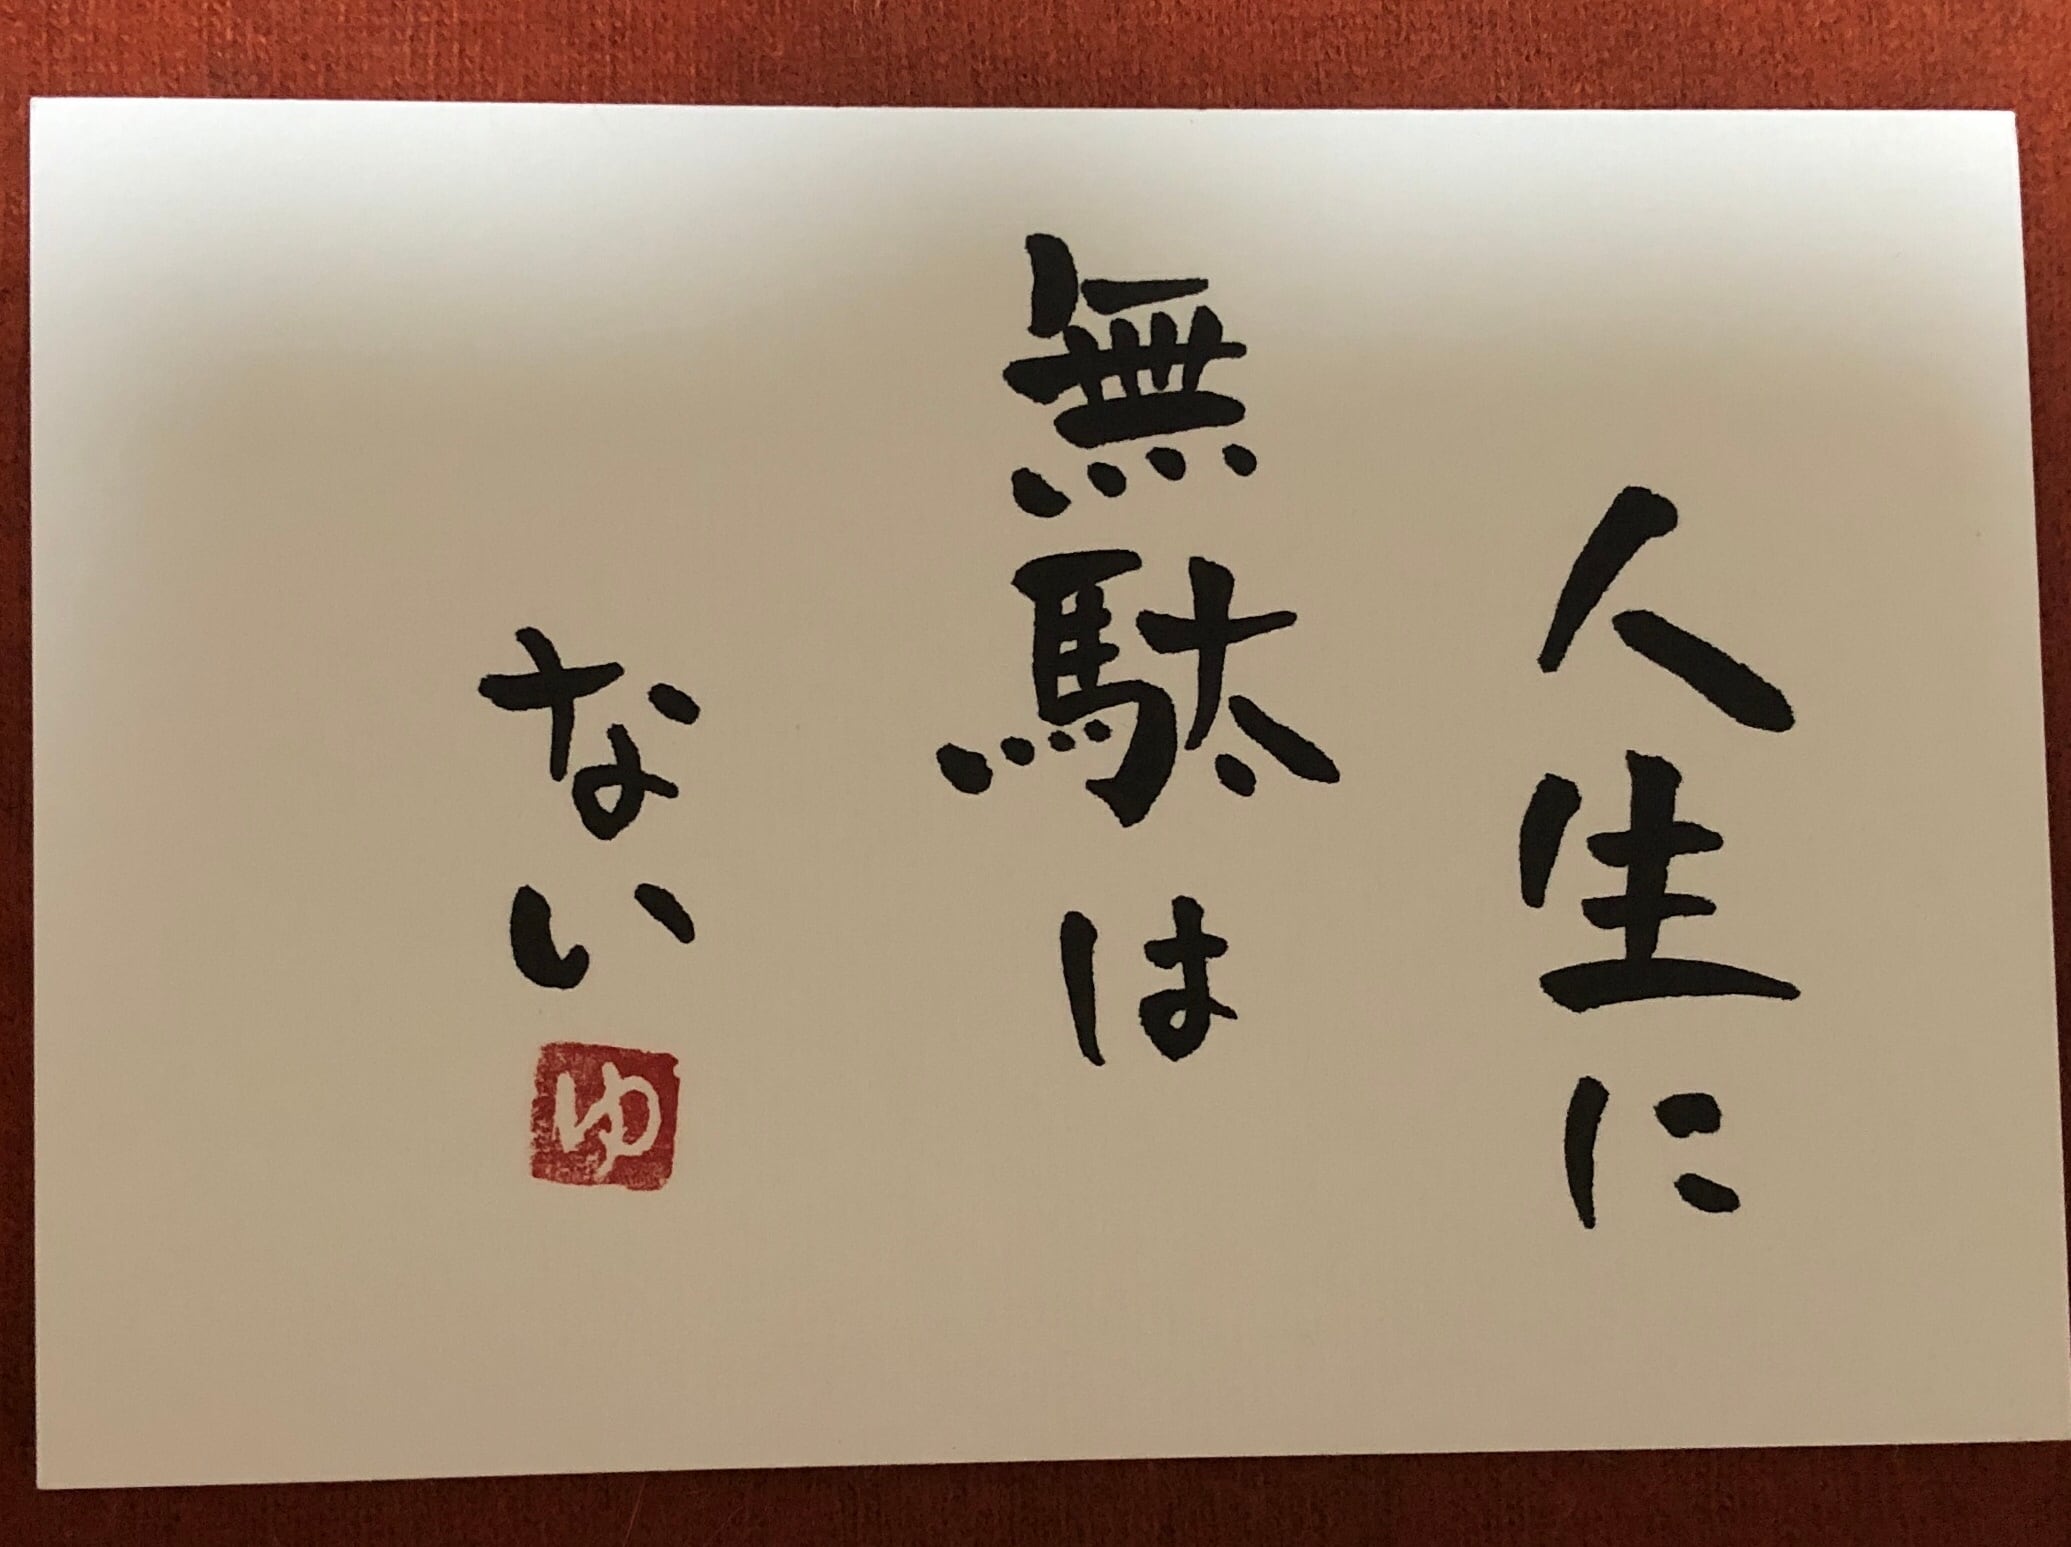 人生に
無駄は
ない
ゆ